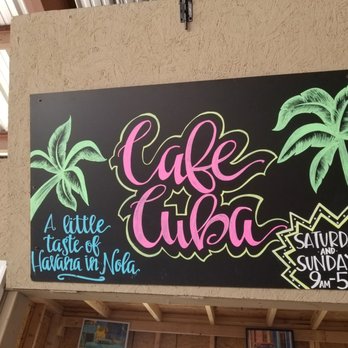 Cafe
Cuba
A little
taste of
Havana in Nola
SATURD
AND
SUNDAY
9AM-5